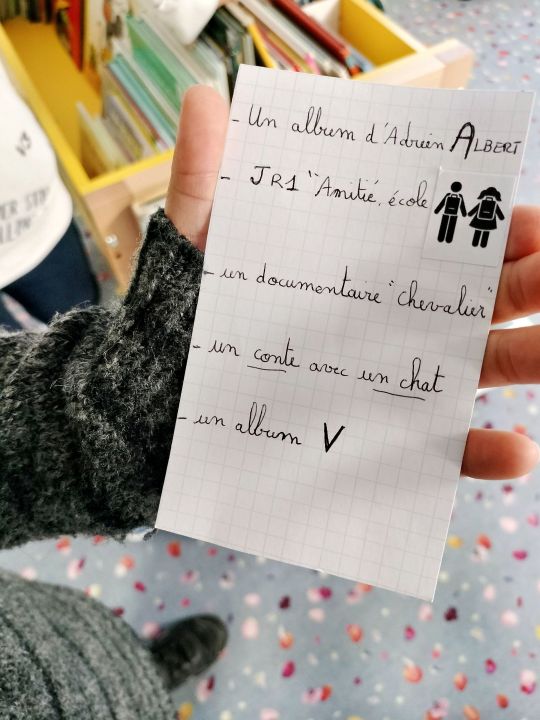 - Un album d'Adrien ALBERT
- JR1 "Amitié, école
- un documentaire "chevalier"
- un conte avec un chat
- un album V